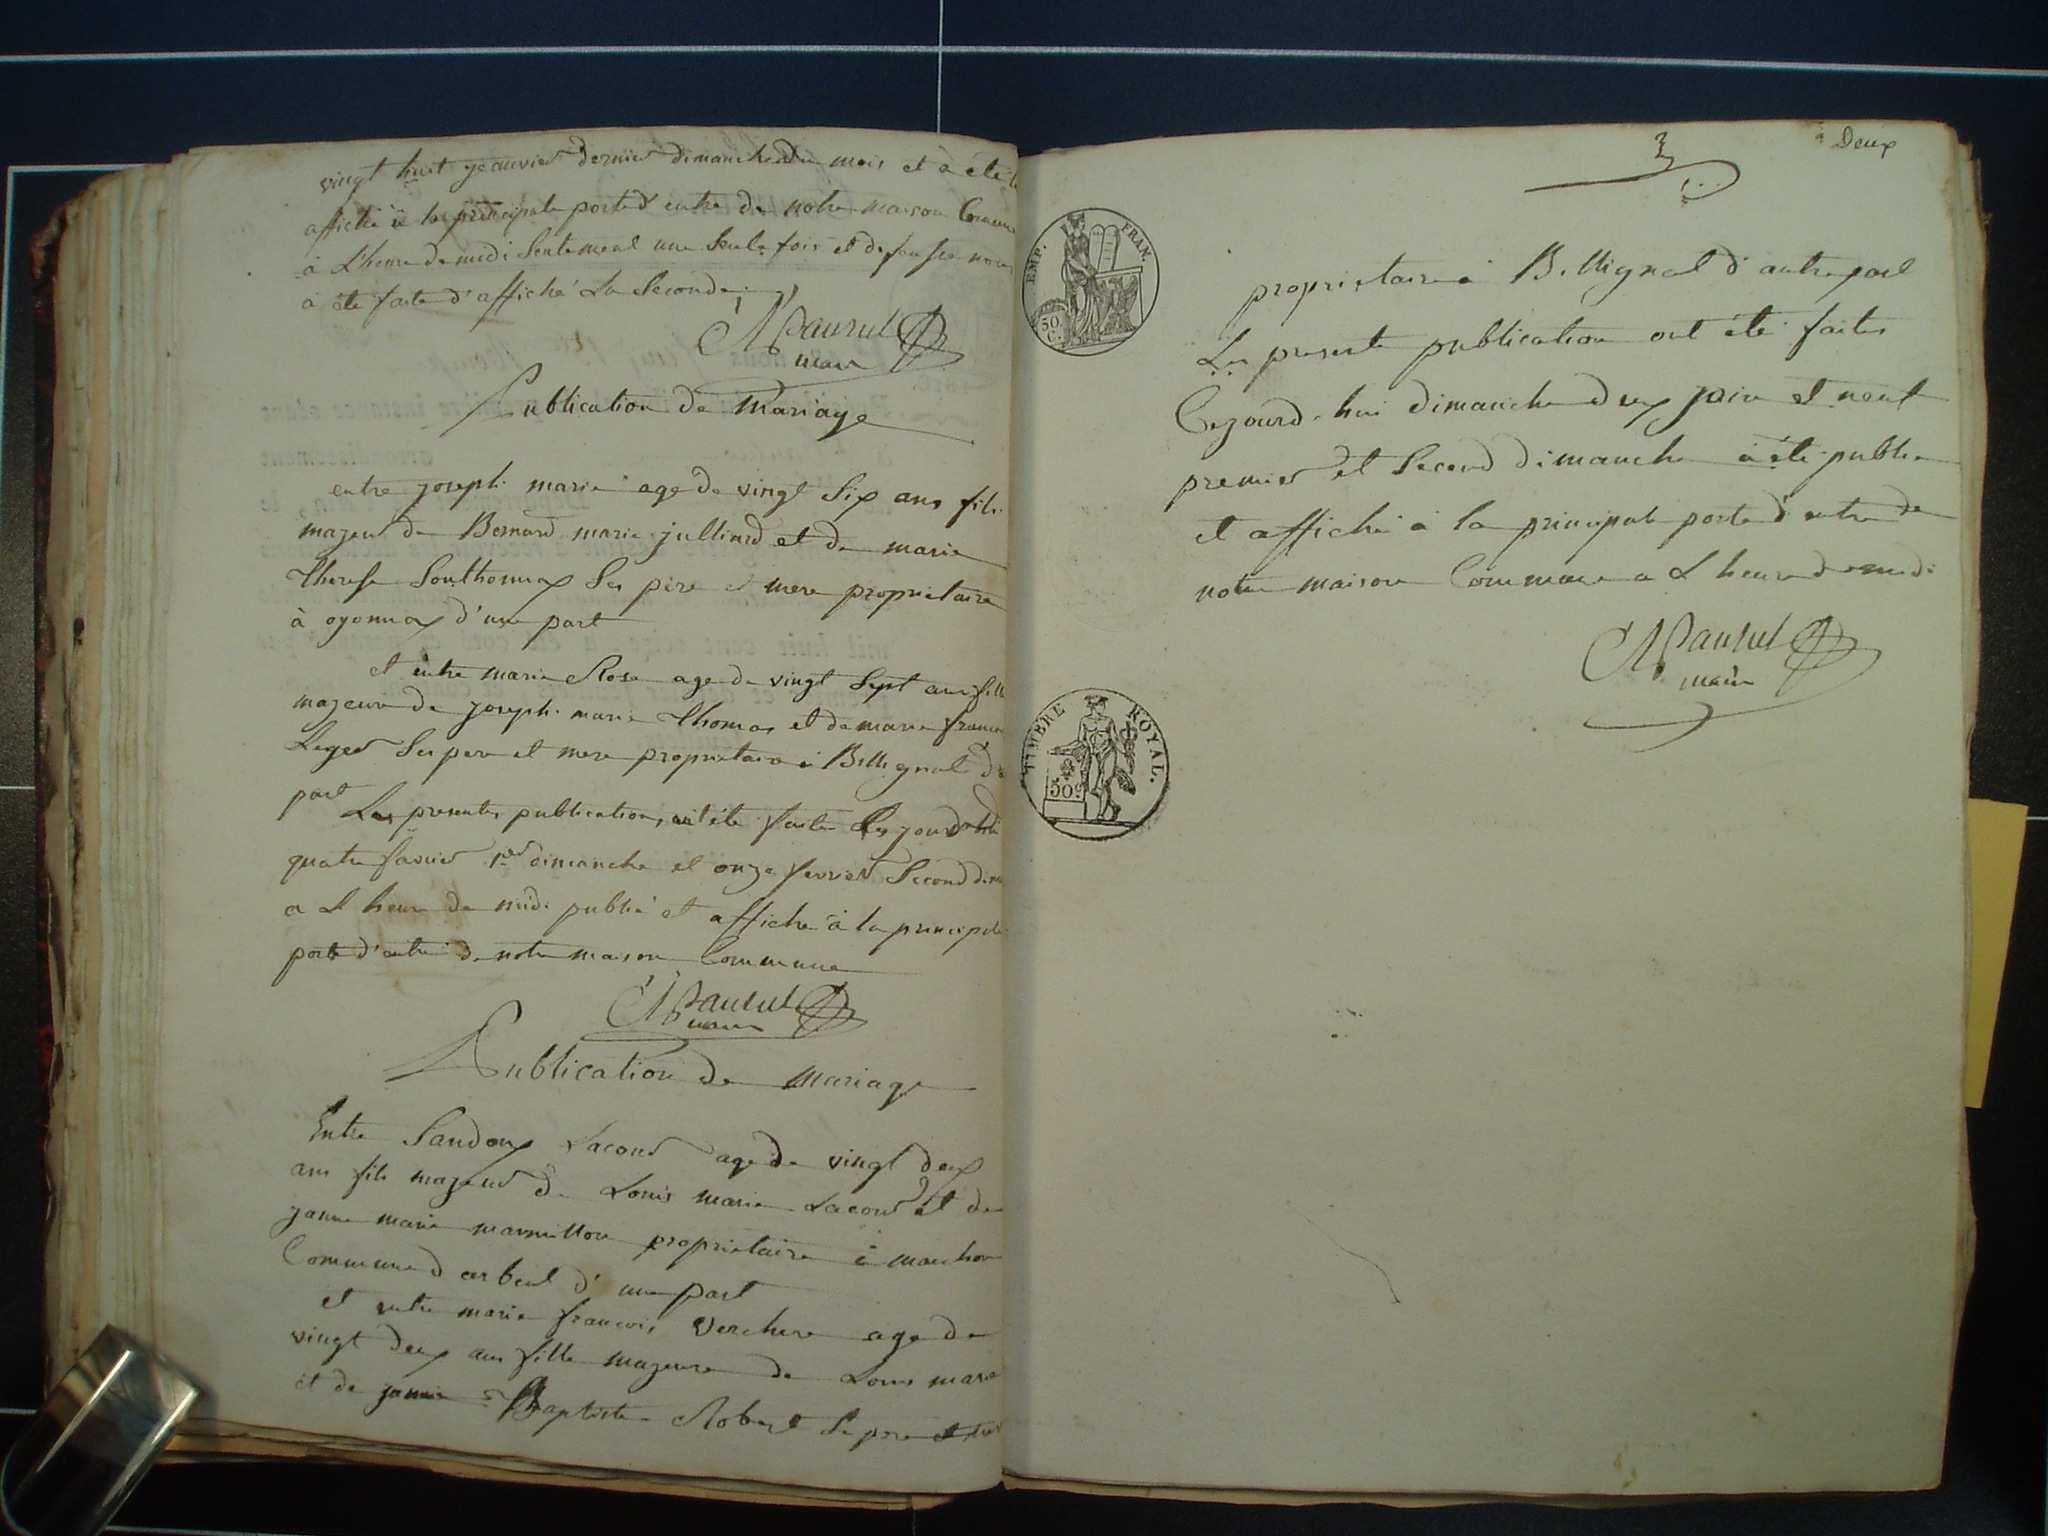 vingt huit jeauvier dernier dimanche du mois et à été
affiché à la principale porte d'entre de notre maison Commune
à L'heure de midi Seulement une Seule fois et
à été faite d'affiché La Seconde
maire
Publication de Mariage
entre joseph marie age de vingt Six ans fils
majeur de Bernard marie julliard et de marie
Therese Southonnax Ses père et mere proprietaire
à oyonnax d'une part
et entre marie Rose age de vingt Sept ans fille
majeure de joseph marie Thomas et de marie
Leger Ses pere et mere proprietaire à Bellignat
part
Les presentes publications ont été faites
quatre favrier 1er dimanche et onze fevrier Second
a L heure de midi publié et affiche à la principale
porte d'entre de notre maison Commune
maire
Publication de mariage
Entre Sandoux Lacour age de vingt deux
ans fils majeur de Louis marie Lacour et de
janne marie marmillon proprietaire à marchon
Commune d arbent d'une part
et entre marie francois Verchere age de
vingt deux ans fille majeure de Louis marie
et de janne Baptiste Robert Se pere et mere
Deux
EMP. FRAN.
50 C.
proprietaire à Bellignat d'autre part
Les presente publication ont été faites
Cejourd'hui dimanche deux juin et neuf
premier et Second dimanche à été publie
et affiché à la principale porte d'entre de
notre maison Commune a L heure de midi
maire
TIMBRE ROYAL.
50c